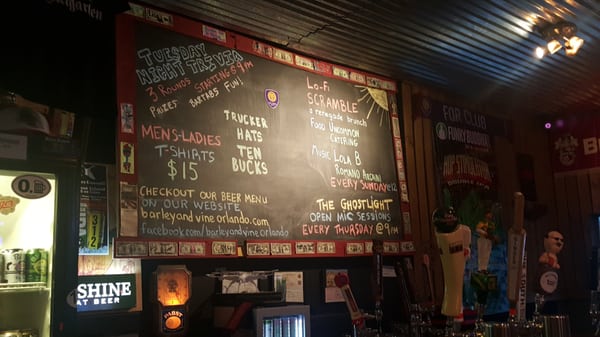 TUESDAY
NIGHT TRIVIA
3 ROUNDS STARTING @ 9PM
PRIZES BARTABS FUN!
MENS-LADIES
T-SHIRTS
$15
TRUCKER
HATS
TEN
BUCKS
CHECKOUT OUR BEER MENU
ON OUR WEBSITE
barleyandvineorlando.com
facebook.com/barleyandvine.orlando
Lo-Fi
SCRAMBLE
a renegade brunch
FOOD UNCOMMON
CATERING
MUSIC LOLA B
ROMANO
EVERY SUNDAY @12
THE GHOSTLIGHT
OPEN MIC SESSIONS
EVERY THURSDAY @9PM
FOR CLUB
FUNKY BUDDHA
SHINE
AT BEER
PABST